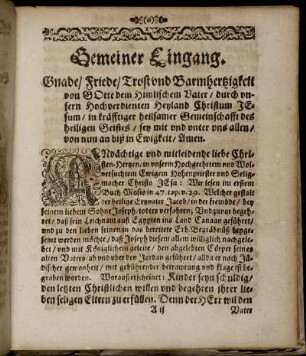 Gemeiner Eingang.
Gnade/ Friede/ Trost vnd Barmhertzigkeit
von GOtte dem Himlischem Vater/ durch vn-
sern Hochverdienten Heyland Christum JE-
sum/ in kräfftiger heilsamer Gemeinschafft des
heiligen Geistes/ sey mit vnd vnter vns allen/
von nun an biß in Ewigkeit/ Amen.
ANdächtige vnd mitleidende liebe Chri-
sten-Hertzen/ in vnserm Hochgeehrtem vnd Wol-
versuchtem Ewigem Hohenpriester vnd Selig-
macher Christo JEsu: Wir lesen im ersten
Buch Mosis in 47. cap. v. 29. Welcher gestalt
der heilige Ertzvater Jacob/ in der frembde/ bey
seinem liebem Sohne Joseph
daß sein Leichnam auß Egypten ins Land Canaan geführet/
vnd zu den lieben seinen in das bereitete Erb-Begräbnüß beyge-
setzet werden möchte/ daß Joseph diesem allem williglich nachgele-
bet/ vnd mit Königlichem geleite/ den abgelebten Cörper seines
alten Vaters ab vnd vber den Jordan geführet/ allda er nach Jü-
discher gewonheit/ mit gebührender betrawrung vnd klage ist be-
graben worden. Worauß erscheinet: Kinder seyn schuldig/
den letzten Christlichen willen vnd begehren ihrer lie-
ben seligen Eltern zu erfüllen. Denn der HErr wil den
A ij
Vater